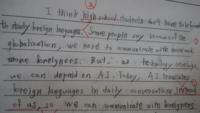 I think high school students don't have to be forced
to study foreign languages. Some people say because of the
globalization, we have to communicate with
more foreigners. But as technology
we can depend on AI. Today, AI translates
foreign languages in daily conversations instead
of us, so we can communicate with foreigners